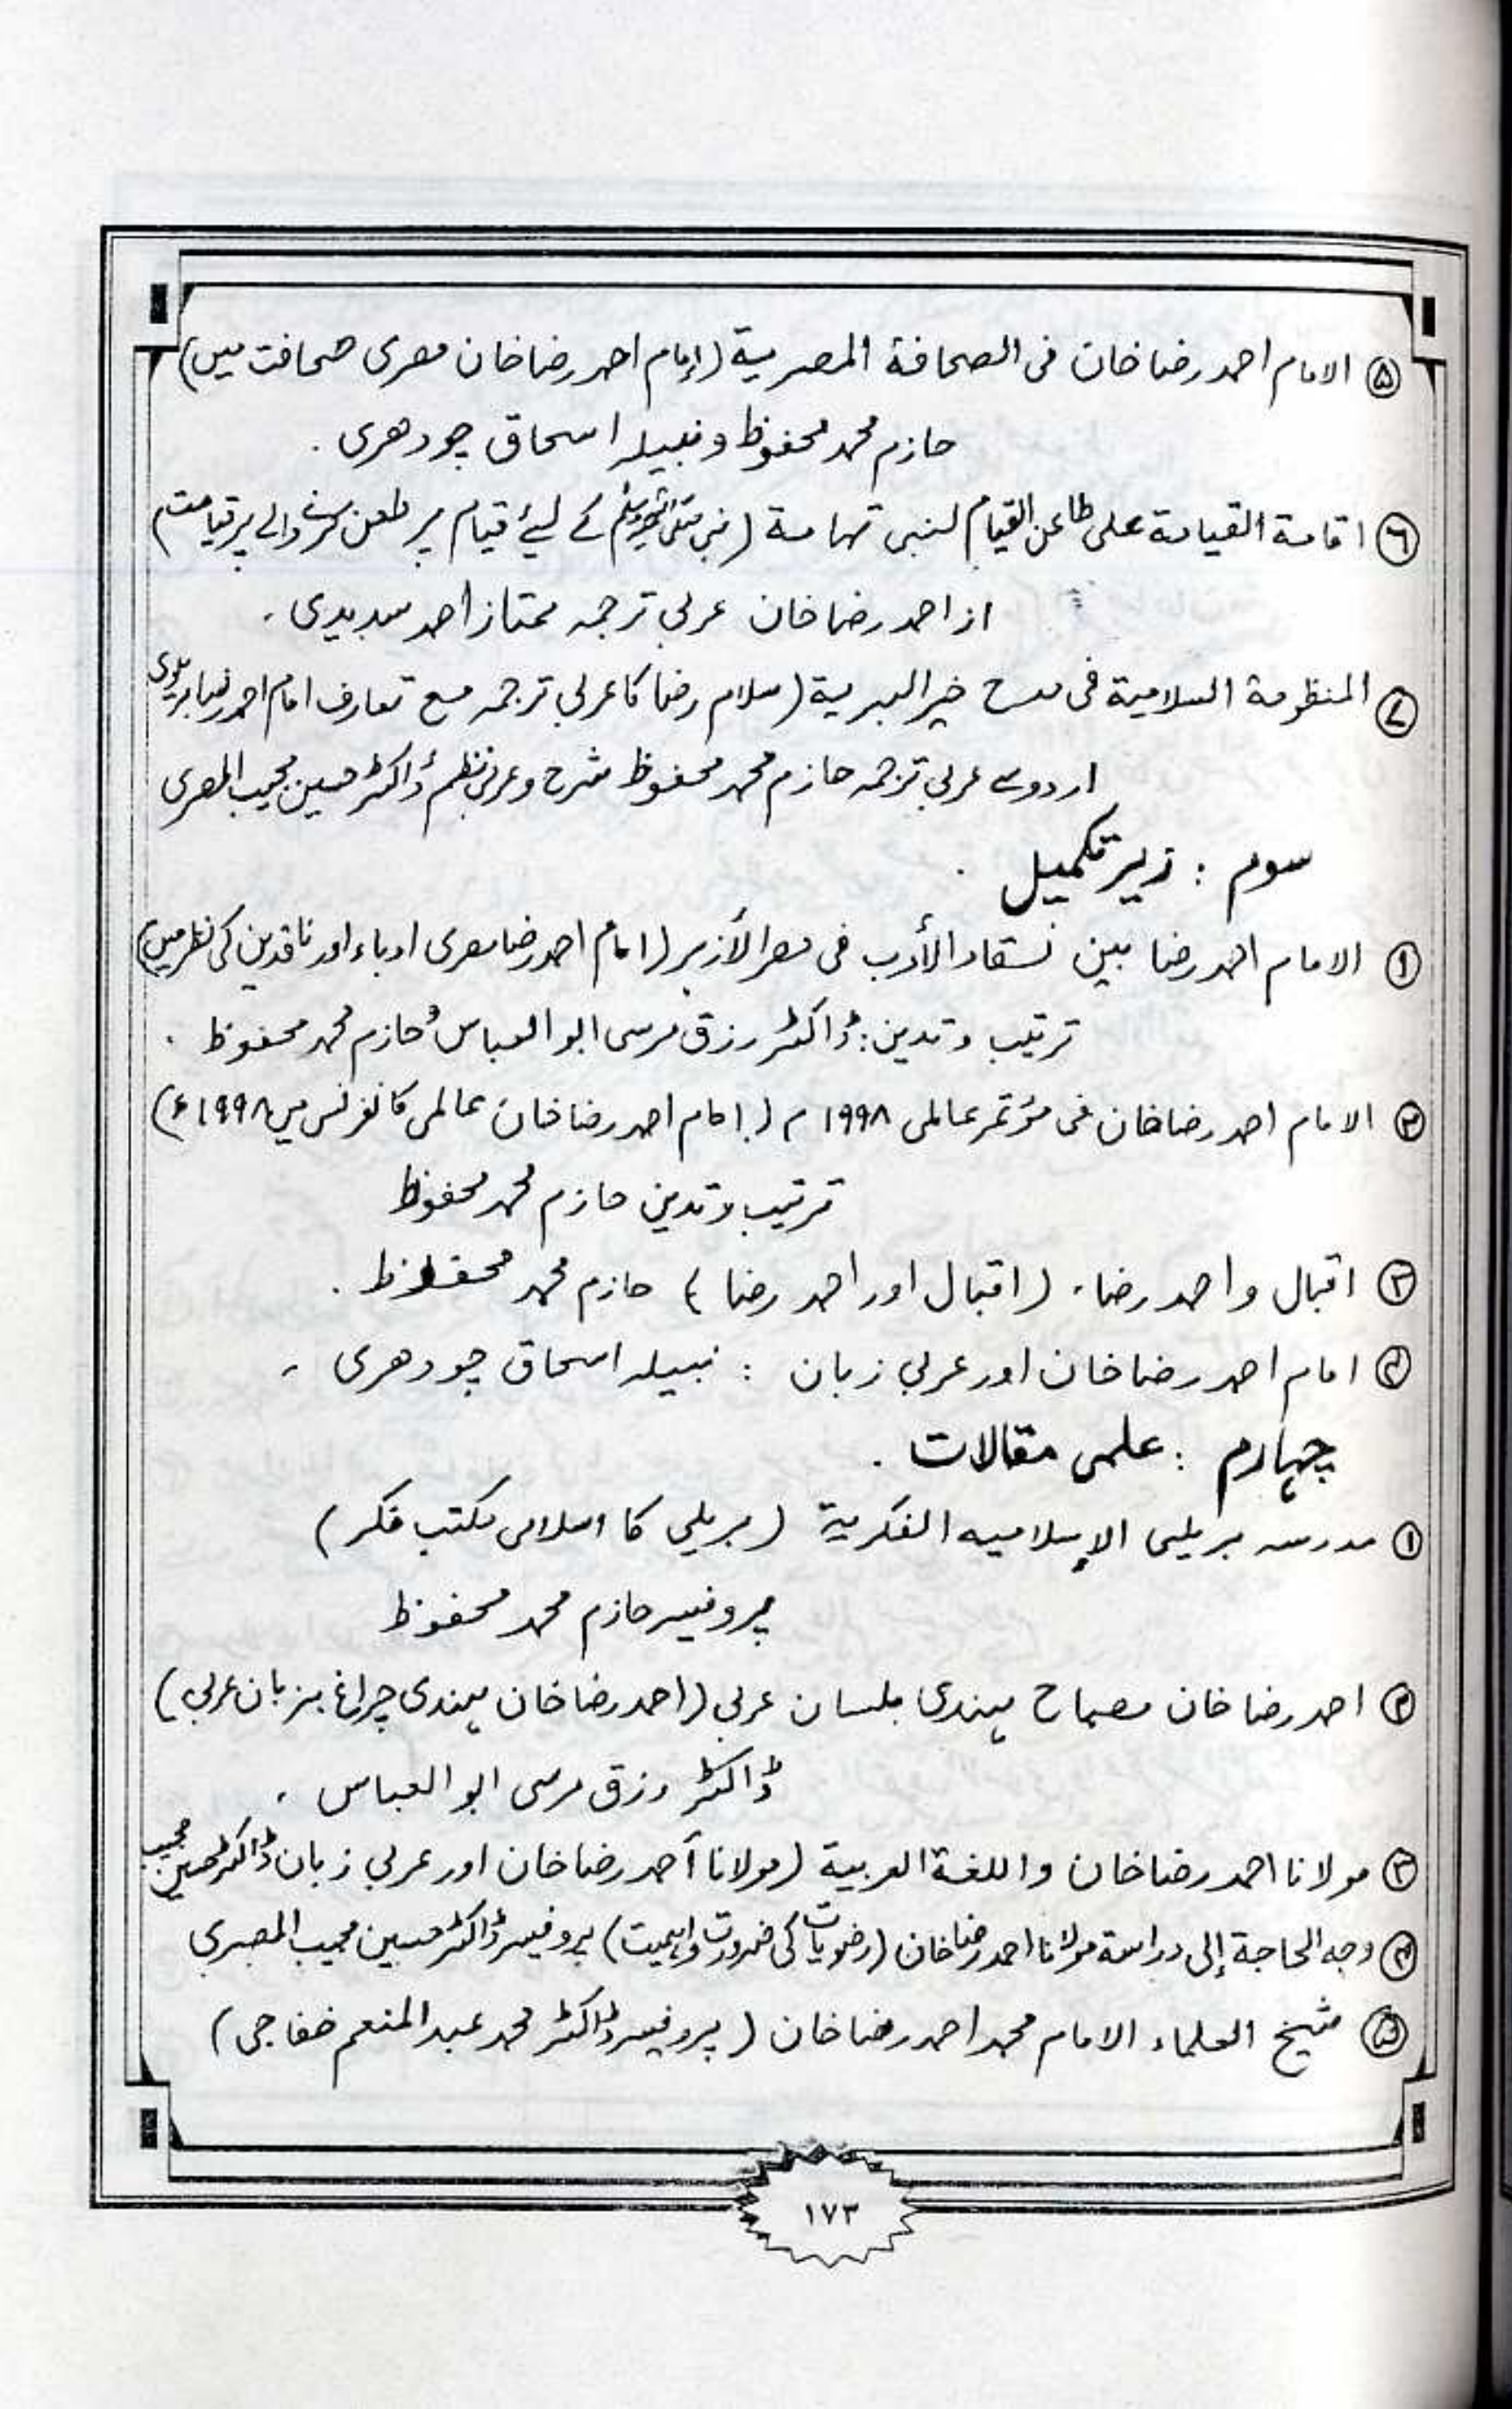 ۵ الامام احمد رضا خان فی الصحافة المصریة (إمام احمد رضا خان مصری صحافت میں)
حازم محمد محفوظ و نبیلہ اسحاق چودھری ۔
۶ اقامة القیامة علی طاعن القیام لنبی تهامة (نبی صلی اللہ علیہ وسلم کے لیئے قیام پر طعن کرنے والے پر قیامت)
از احمد رضا خان عربی ترجمہ ممتاز احمد سدیدی ۔
۷ المنظومة السلامیة فی مدح خیر البریة (سلام رضا کا عربی ترجمہ مع تعارف امام احمد رضا بریلوی
اردو سے عربی ترجمہ حازم محمد محفوظ شرح و عربی نظم ڈاکٹر حسین مجیب المصری
سوم : زیر تکمیل ۔
۱ الامام احمد رضا بین نقاد الأدب فی مصر الأزہر (امام احمد رضا مصری ادباء اور ناقدین کی نظر میں)
ترتیب و تدین : ڈاکٹر رزق مرسی ابو العباس و حازم محمد محفوظ ۔
۲ الامام احمد رضا خان فی مؤتمر عالمی ۱۹۹۸ م (امام احمد رضا خان عالمی کانفرنس میں ۱۹۹۸ء)
ترتیب و تدین حازم محمد محفوظ
۳ اقبال و احمد رضا، (اقبال اور احمد رضا) حازم محمد محفوظ ۔
۴ امام احمد رضا خان اور عربی زبان : نبیلہ اسحاق چودھری ۔
چہارم : علمی مقالات ۔
۱ مدرسہ بریلی الإسلامیه الفکریة (بریلی کا اسلامی مکتب فکر)
پروفیسر حازم محمد محفوظ
۲ احمد رضا خان مصباح ہندی بلسان عربی (احمد رضا خان ہندی چراغ بزبان عربی)
ڈاکٹر رزق مرسی ابو العباس ۔
۳ مولانا احمد رضا خان و اللغة العربیة (مولانا أحمد رضا خان اور عربی زبان ڈاکٹر حسین مجیب
۴ وجه الحاجة إلی دراسة مولانا احمد رضا خان (رضویات کی ضرورت و اہمیت) پروفیسر ڈاکٹر حسین مجیب المصری
۵ شیخ العلماء الامام محمد احمد رضا خان (پروفیسر ڈاکٹر محمد عبد المنعم خفاجی)
۱۷۳